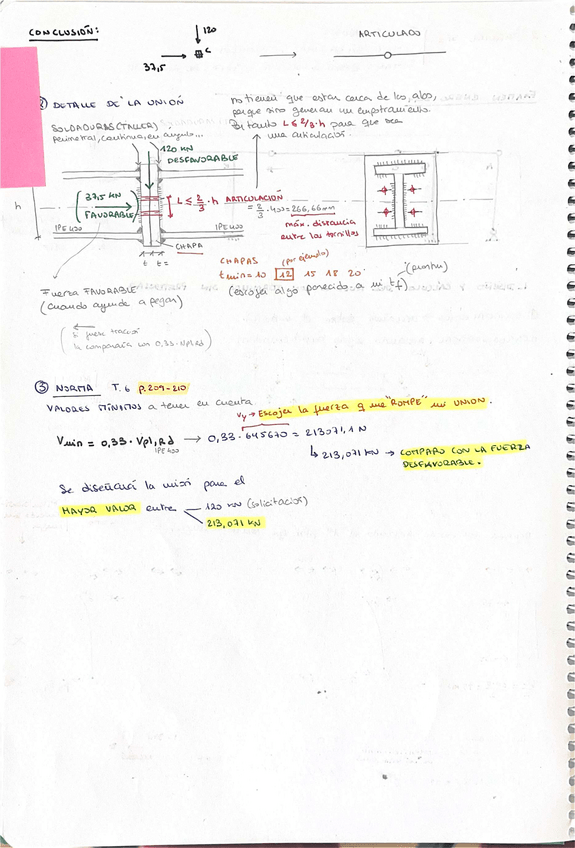 CONCLUSIÓN:
120
C
37,5
ARTICULADO
2) DETALLE DE LA UNIÓN
no tienen que estar cerca de las alas,
porque sino generan un empotramiento.
Por tanto L ≤ 2/3·h para que sea
una articulación.
SOLDADURAS (TALLER)
perimetral, continua, en ángulo...
120 KN
DESFAVORABLE
37,5 KN
FAVORABLE
L ≤ 2/3 · h ARTICULACIÓN
= 2/3 · 400 = 266,66 mm
máx. distancia
entre los tornillos
h
IPE 400
IPE 400
CHAPA
t t =
CHAPAS (por ejemplo)
tmin = 10 12 15 18 20
(escojer algo parecido a mi tf)
Fuerza FAVORABLE
(cuando ayuda a pegar)
Si fuese tracción
la compararía con 0,33·Vpl,Rd
③ NORMA T.6 p.209-210
VALORES MÍNIMOS a tener en cuenta
Vy → Escojer la fuerza q me "ROMPE" mi UNION.
Vmin = 0,33 · Vpl,Rd → 0,33 · 645670 = 213071,1 N
IPE 400
↳ 213,071 KN → COMPARO CON LA FUERZA
DESFAVORABLE.
Se diseñará la unión para el
MAYOR VALOR entre 120 KN (solicitación)
213,071 KN